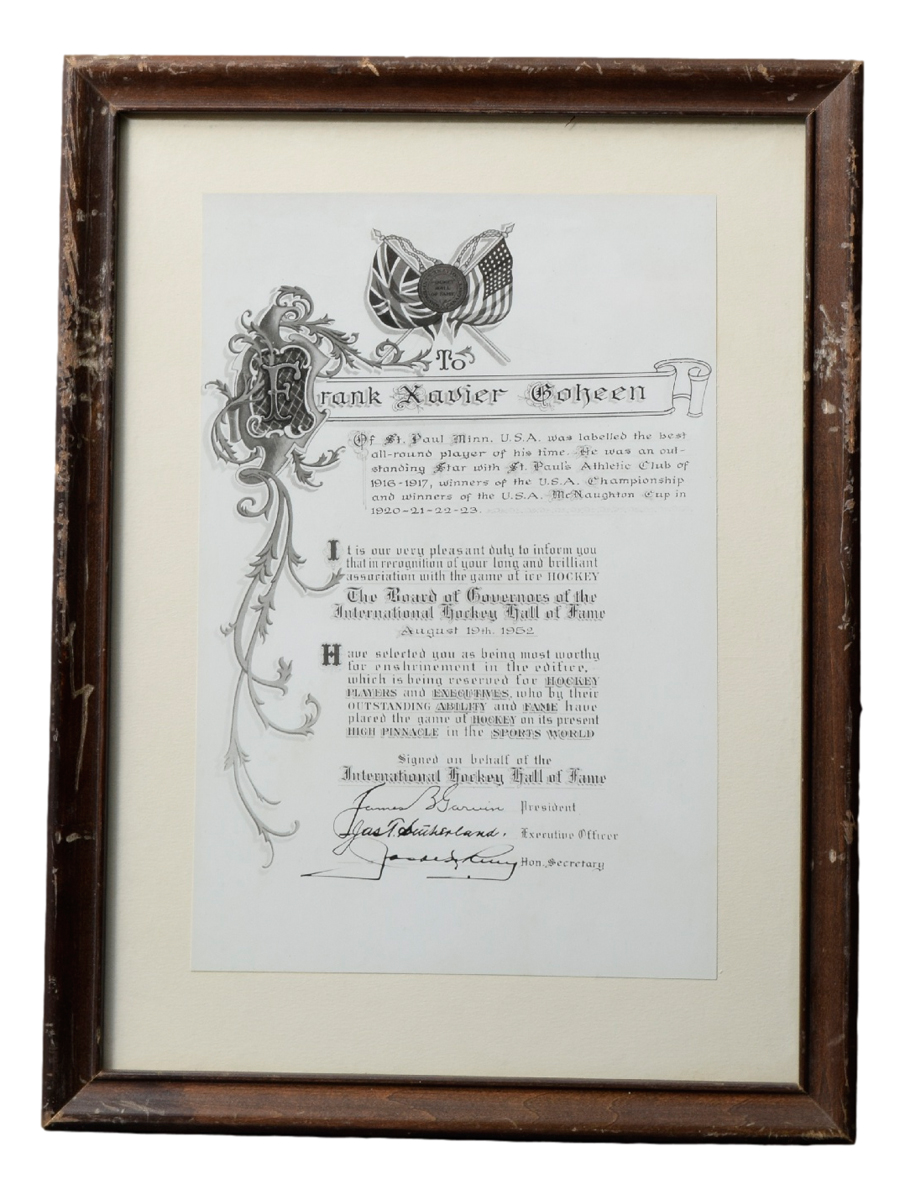 HOCKEY
HALL
OF FAME
To
Frank Xavier Goheen
Of St. Paul Minn. U.S.A. was labelled the best
all-round player of his time. He was an out-
standing Star with St. Paul's Athletic Club of
1916-1917, winners of the U.S.A. Championship
and winners of the U.S.A. McNaughton Cup in
1920-21-22-23.
It is our very pleasant duty to inform you
that in recognition of your long and brilliant
association with the game of ice HOCKEY
The Board of Governors of the
International Hockey Hall of Fame
August 19th. 1952
Have selected you as being most worthy
for enshrinement in the edifice,
which is being reserved for HOCKEY
PLAYERS and EXECUTIVES, who by their
OUTSTANDING ABILITY and FAME have
placed the game of HOCKEY on its present
HIGH PINNACLE in the SPORTS WORLD
Signed on behalf of the
International Hockey Hall of Fame
James B Garvin President
Jas T. Sutherland. Executive Officer
Hon. Secretary